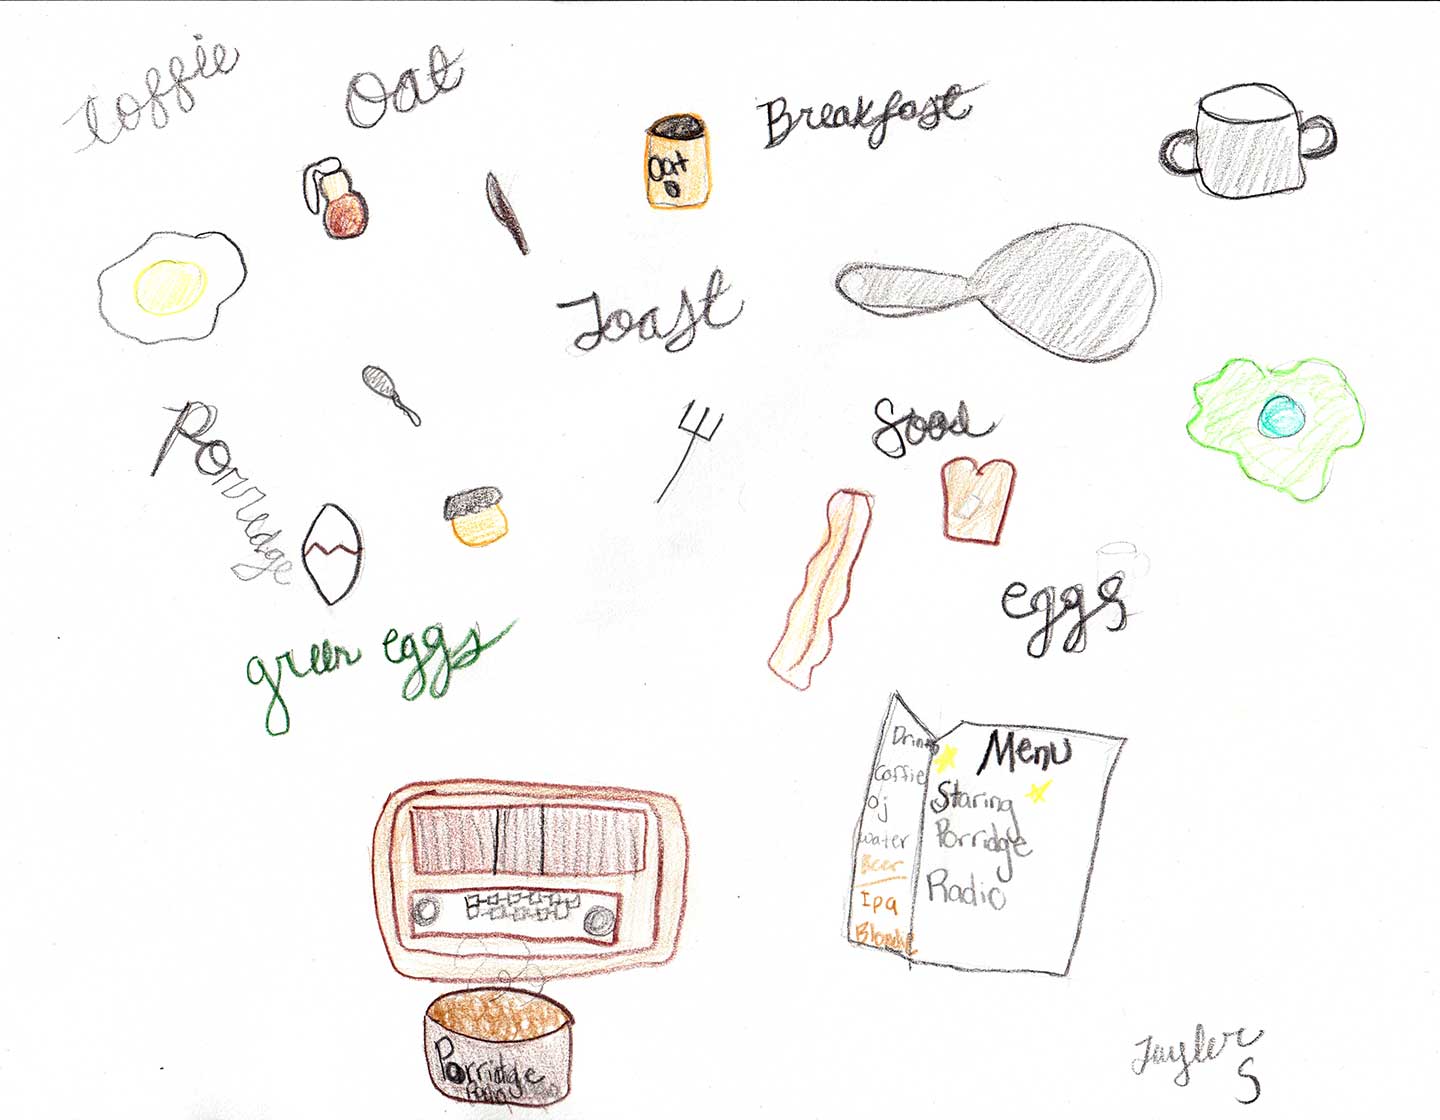 Coffie
Oat
Breakfast
Oat
Toast
Porredge
Food
eggs
green eggs
Drinks
Coffie
oj
water
Beer
Ipa
Blonde
Menu
Staring
Porridge
Radio
Porridge
Tayler
S